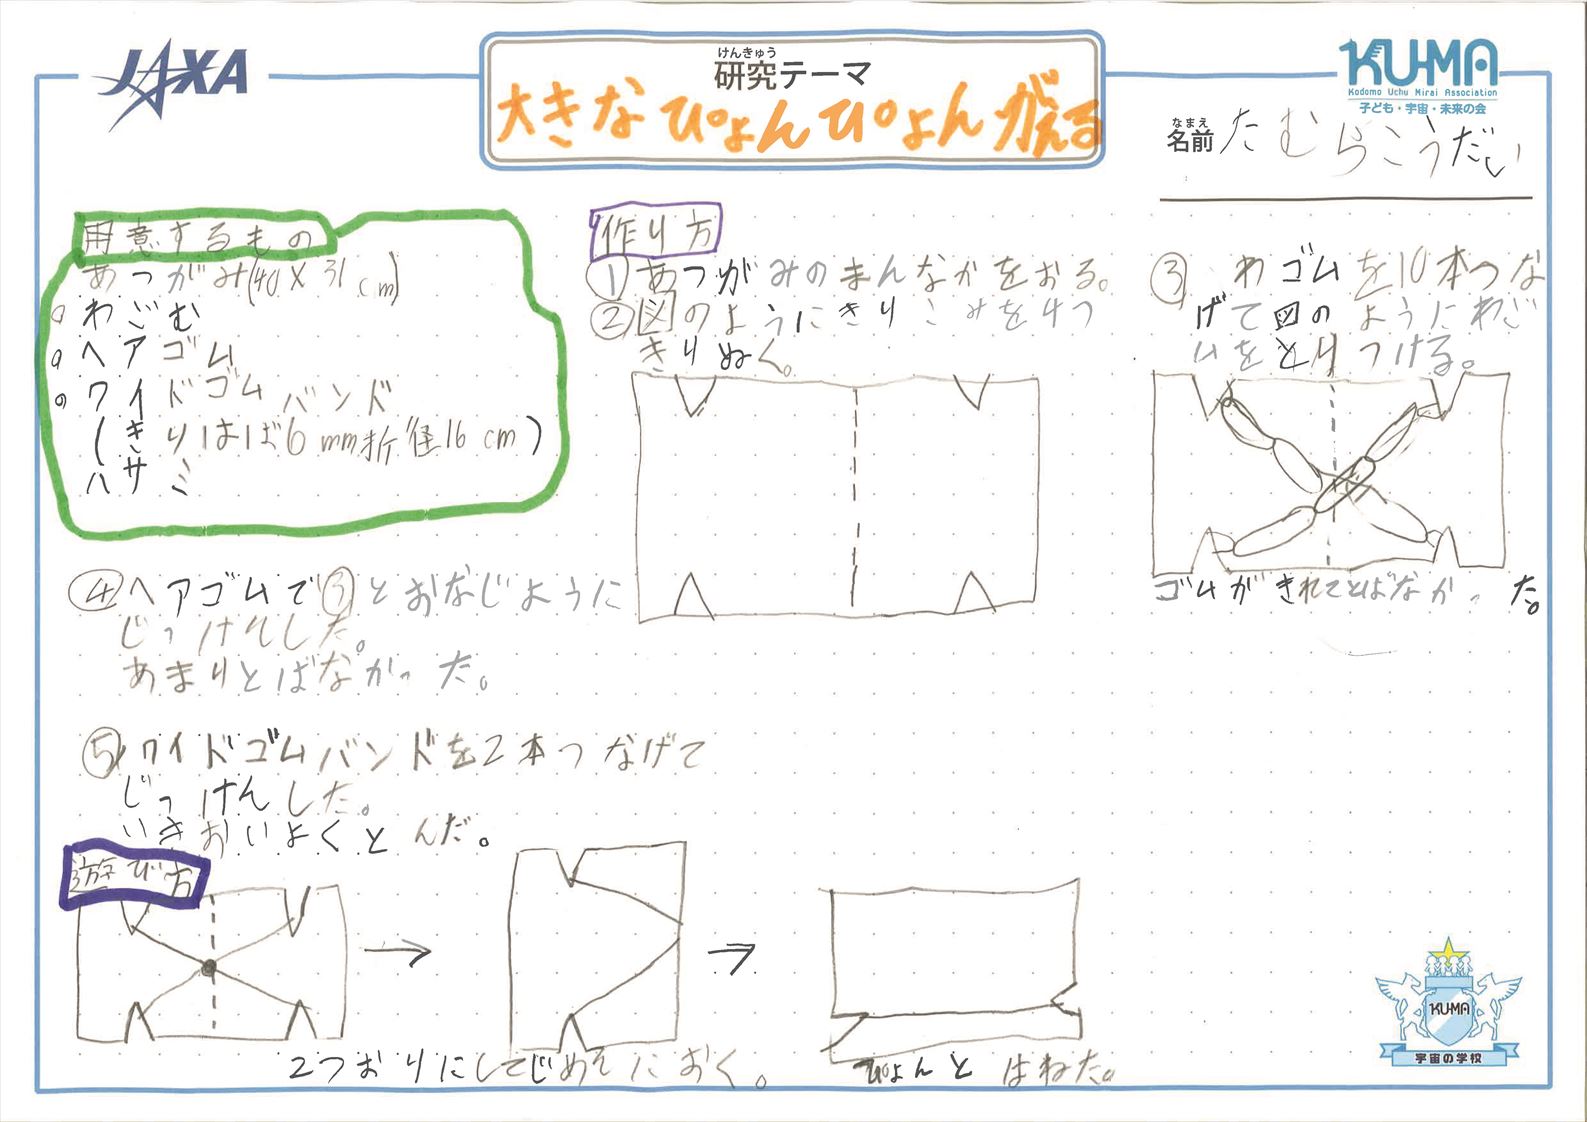 JAXA
けんきゅう
研究テーマ
大きなぴょんぴょんがえる
KU-MA
Kodomo Uchu Mirai Association
子ども・宇宙・未来の会
なまえ
名前 たむらこうだい
用意するもの
あつがみ(40×31cm)
わごむ
ヘアゴム
ワイドゴムバンド
(きりはば6mm折径16cm)
ハサミ
作り方
①あつがみのまんなかをおる。
②図のようにきりこみを4つ
きりぬく。
③わゴムを10本つな
げて図のようにわご
ムをとりつける。
ゴムがきれてとばなかった。
④ヘアゴムで③とおなじように
じっけんした。
あまりとばなかった。
⑤ワイドゴムバンドを2本つなげて
じっけんした。
いきおいよくとんだ。
遊び方
2つおりにしてじめんにおく。
ぴょんとはねた。
KU-MA
宇宙の学校